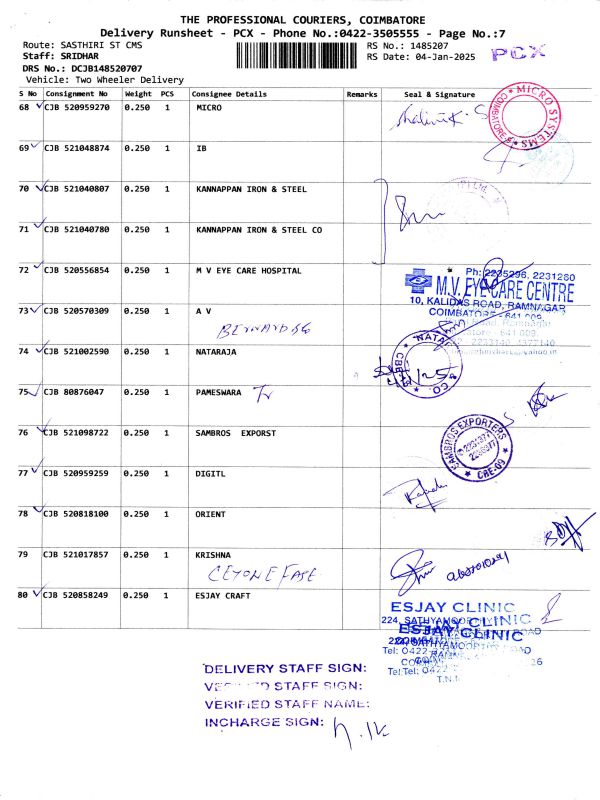 THE PROFESSIONAL COURIERS, COIMBATORE
Delivery Runsheet - PCX - Phone No.:0422-3505555 - Page No.:7
Route: SASTHIRI ST CMS
RS No.: 1485207
PCX
Staff: SRIDHAR
RS Date: 04-Jan-2025
DRS No.: DCJB148520707
Vehicle: Two Wheeler Delivery
S No Consignment No Weight PCS Consignee Details Remarks Seal & Signature
68 CJB 520959270 0.250 1 MICRO
MICRO SYSTEMS COIMBATORE
69 CJB 521048874 0.250 1 IB
70 CJB 521040807 0.250 1 KANNAPPAN IRON & STEEL
71 CJB 521040780 0.250 1 KANNAPPAN IRON & STEEL CO
72 CJB 520556854 0.250 1 M V EYE CARE HOSPITAL
Ph: 2235296, 2231260
M.V. EYE CARE CENTRE
10, KALIDAS ROAD, RAMNAGAR
COIMBATORE - 641 009
73 CJB 520570309 0.250 1 A V
74 CJB 521002590 0.250 1 NATARAJA
75 CJB 80876047 0.250 1 PAMESWARA
76 CJB 521098722 0.250 1 SAMBROS EXPORST
SAMBROS EXPORTERS
CBE-09
77 CJB 520959259 0.250 1 DIGITL
78 CJB 520818100 0.250 1 ORIENT
79 CJB 521017857 0.250 1 KRISHNA
80 CJB 520858249 0.250 1 ESJAY CRAFT
ESJAY CLINIC
ESJAY CLINIC
DELIVERY STAFF SIGN:
VERIFIED STAFF SIGN:
VERIFIED STAFF NAME:
INCHARGE SIGN: